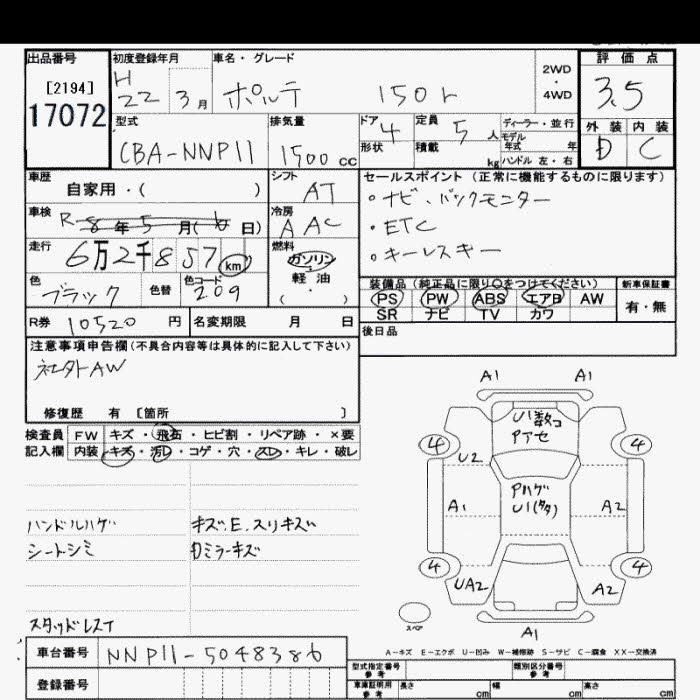 出品番号
[2194]
17072
初度登録年月
H 22 3月
車名・グレード
ポルテ 150r
2WD
・
4WD
評価点
3.5
外装 内装
D C
型式
CBA-NNP11
排気量
1500 cc
ドア 4
形状
定員 5 人
積載 kg
ディーラー・並行
モデル年式 年
ハンドル 左・右
車歴
自家用・( )
シフト
AT
車検 R 8年 5月(6日)
冷房
A AC
走行
6万2千857 km
燃料
ガソリン
軽油
( ・ )
色
ブラック
色替
色コード
209
セールスポイント(正常に機能するものに限ります)
・ナビ、バックモニター
・ETC
・キーレスキー
装備品(純正品に限り〇をつけてください)
PS PW ABS エアB AW
SR ナビ TV カワ
新車保証書
有・無
R券 10520 円
名変期限 月 日
後日品
注意事項申告欄(不具合内容等は具体的に記入して下さい)
社外AW
修復歴 有 〔箇所 〕
検査員 FW キズ・飛石・ヒビ割・リペア跡・×要
記入欄 内装 キズ・汚レ・コゲ・穴・スレ・キレ・破レ
ハンドルハゲ
シートシミ
スタッドレスT
キズ、E、スリキズ
ミラーキズ
A1 A1
U1数コ
Pアセ
4 4
U2
Pハゲ
U1(多)
A1 A2
4 4
UA2 A2
スペア
A1
A-キズ E-エクボ U-凹み W-補修跡 S-サビ C-腐食 XX-交換済
車台番号 NNP11-5048386
登録番号
型式指定番号
参考
類別区分番号
参考
車庫証明用
参考
長さ cm 幅 cm 高さ cm